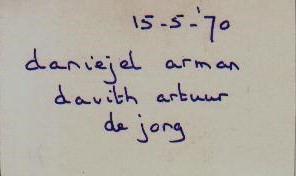 15-5-'70
daniejel arman
davith artuur
de jong